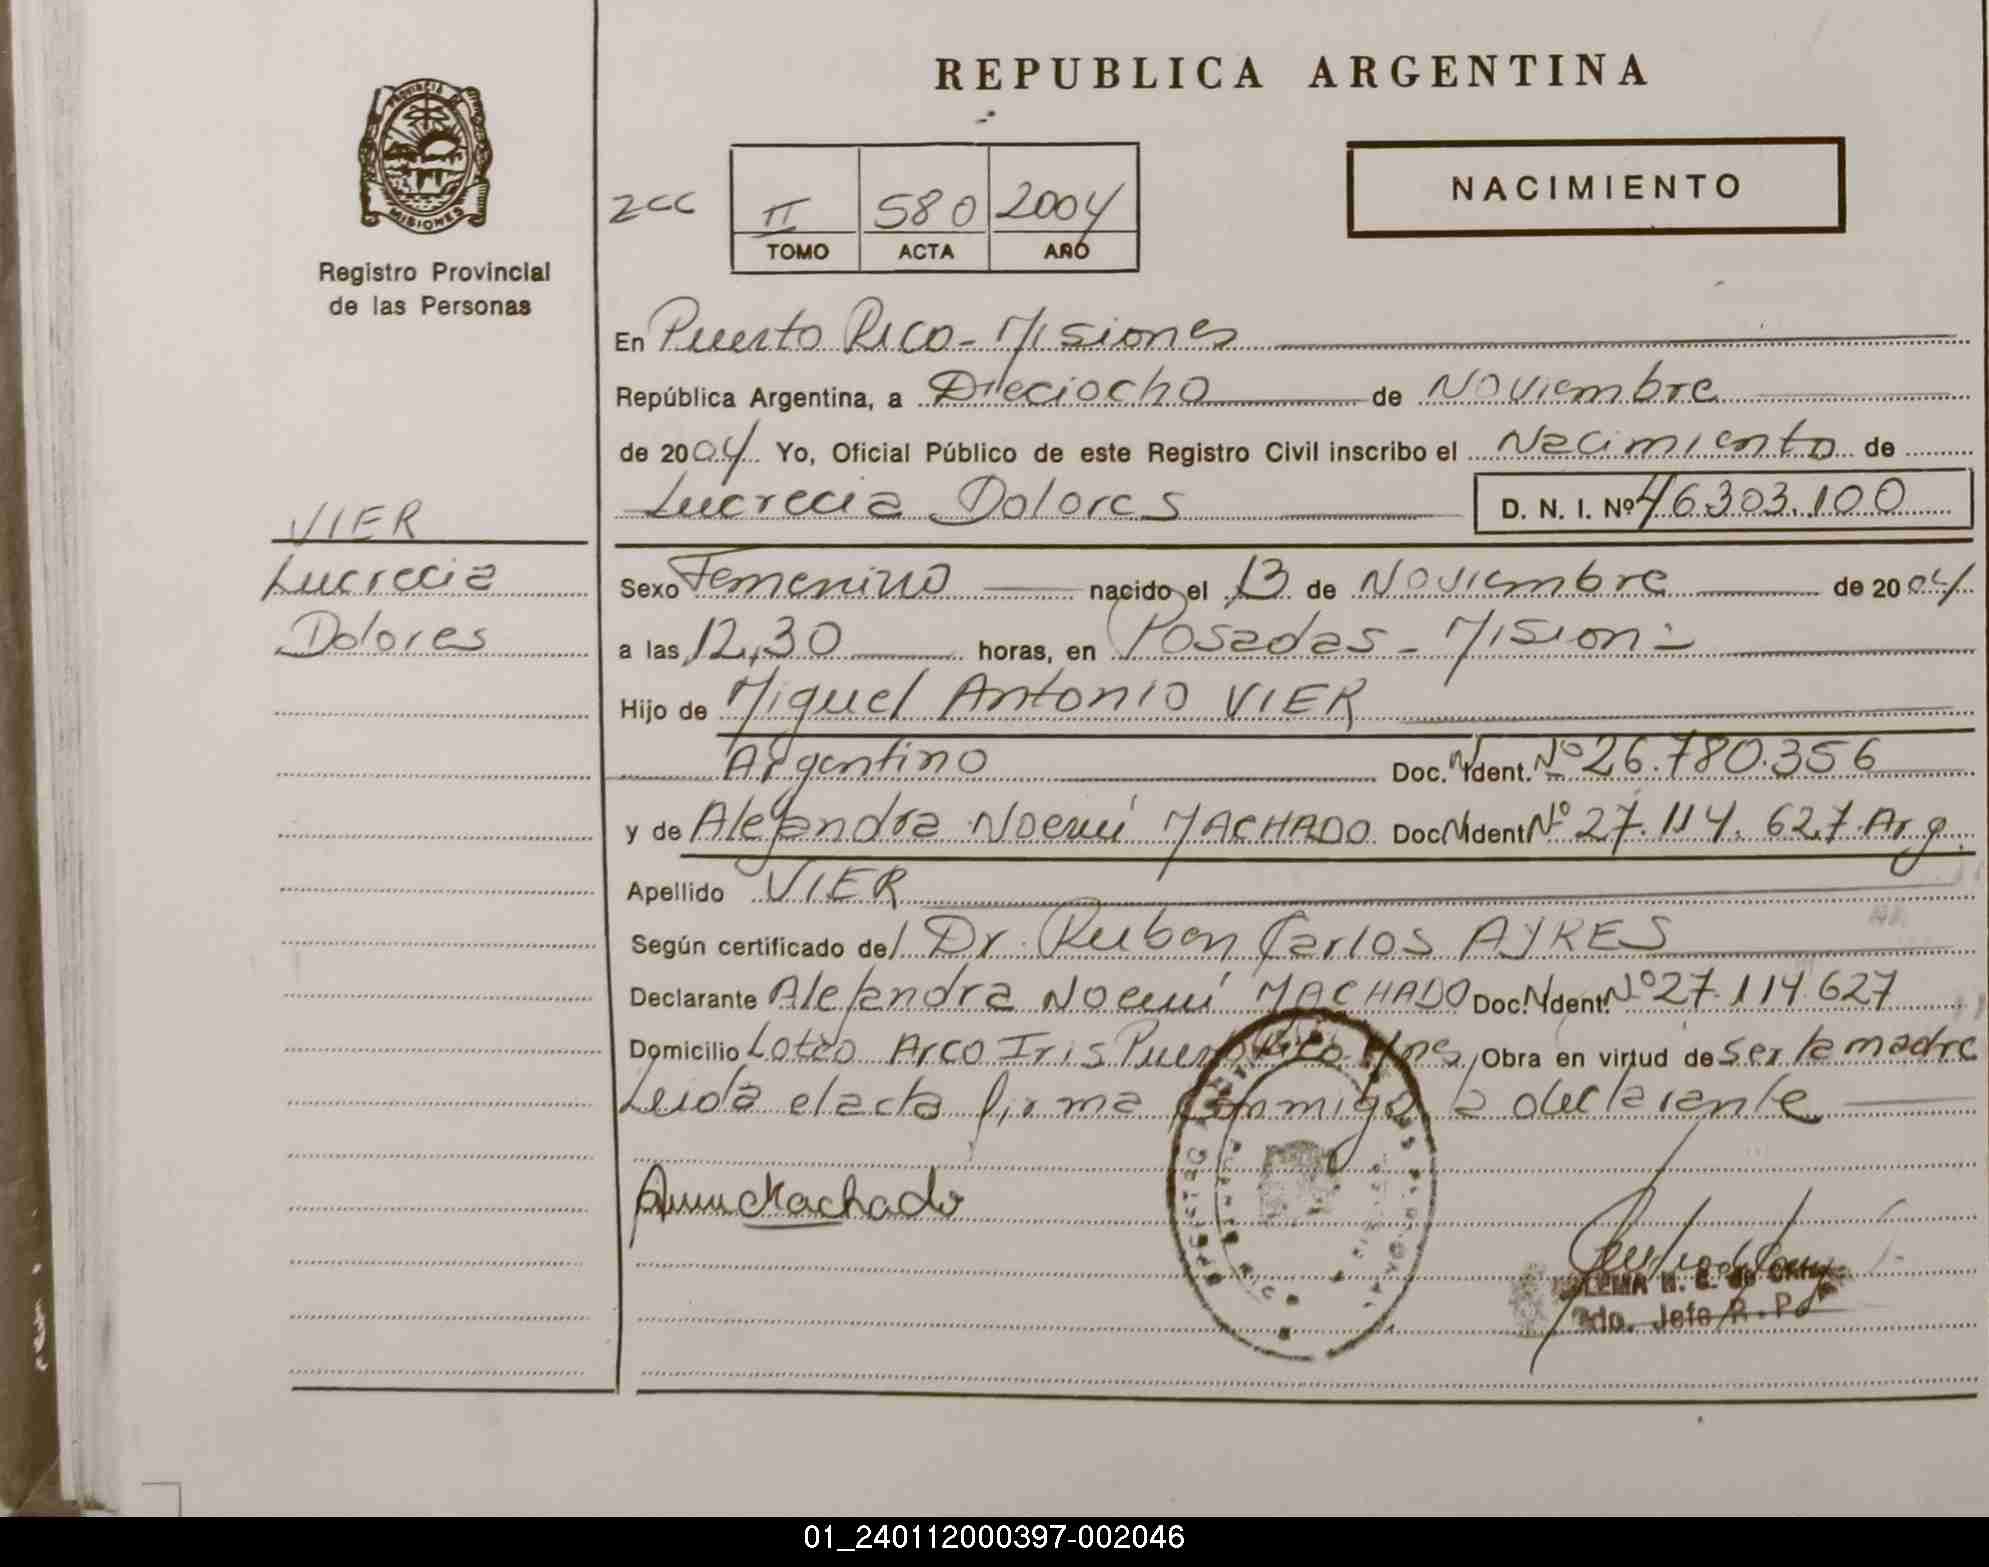 REPUBLICA ARGENTINA
PROVINCIA DE
MISIONES
Registro Provincial
de las Personas
2cc
II 580 2004
TOMO ACTA AÑO
NACIMIENTO
En Puerto Rico - Misiones
República Argentina, a Dieciocho de Noviembre
de 2004 Yo, Oficial Público de este Registro Civil inscribo el Nacimiento de
Lucrecia Dolores D. N. I. Nº 46.303.100
VIER
Lucrecia
Dolores
Sexo Femenino nacido el 13 de Noviembre de 2004
a las 12,30 horas, en Posadas - Mision=
Hijo de Miguel Antonio VIER
Argentino Doc. N Ident. Nº 26.780.356
y de Alejandra Noemí MACHADO Doc N Ident Nº 27.114.627 Arg.
Apellido VIER
Según certificado del Dr. Ruben Carlos AYRES
Declarante Alejandra Noemí MACHADO Doc. N Ident. Nº 27.114.627
Domicilio Loteo Arco Iris Puerto Rico Mnes, Obra en virtud de ser la madre
Leida el acta firma conmigo la declarante
Machado
Jefe R. P.
01_240112000397-002046